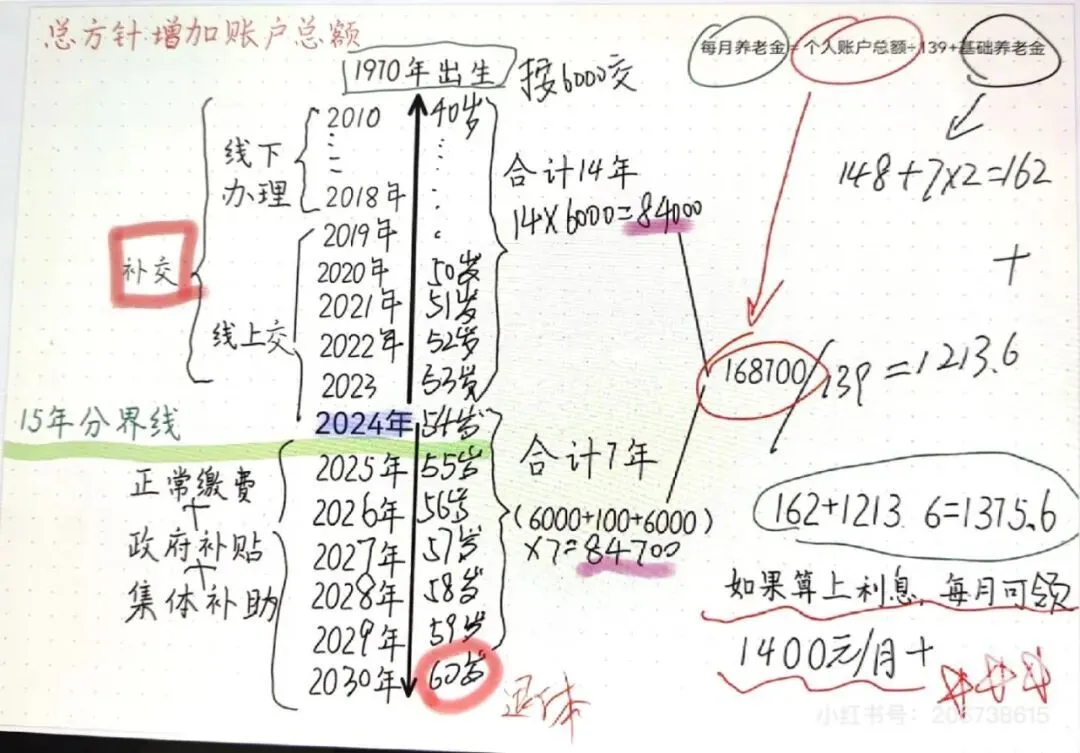 总方针增加账户总额
每月养老金=个人账户总额÷139+基础养老金
1970年出生
按6000交
148+7×2=162
+
补交
线下
办理
线上交
2010 40岁
2018年
2019年
2020年 50岁
2021年 51岁
2022年 52岁
2023 53岁
合计14年
14×6000=84000
168700/139=1213.6
15年分界线
2024年 54岁
2025年 55岁
2026年 56岁
2027年 57岁
2028年 58岁
2029年 59岁
2030年 60岁
退休
正常缴费
+
政府补贴
+
集体补助
合计7年
(6000+100+6000)
×7=84700
162+1213 6=1375.6
如果算上利息,每月可领
1400元/月+
小红书号:206738615